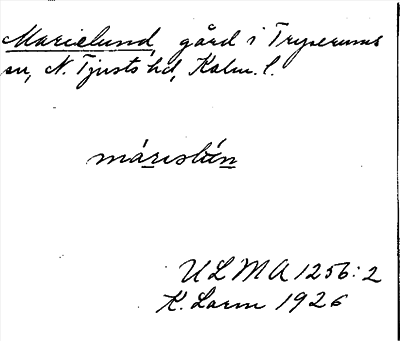 Marielund, gård i Tryserums
sn, N. Tjusts hd, Kalm. l.
U L M A 1256:2
K. Larm 1926